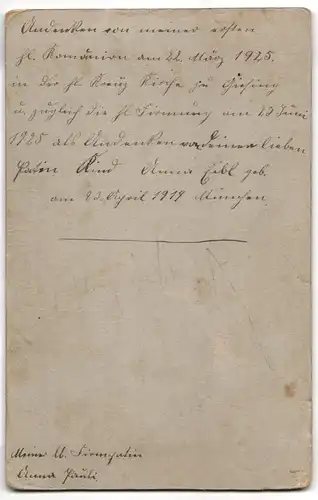 Andenken von meiner ersten
hl. Komunion am 22. März 1925.
in der hl. Kreuz Kirche zu Giesing
u. zugleich die hl. Firmung am 23 Juni
1925 als Andenken von deiner lieben
Patin Kind Anna Eibl geb.
am 23. April 1914 München.
Meine lb. Firmpatin
Anna Pauli